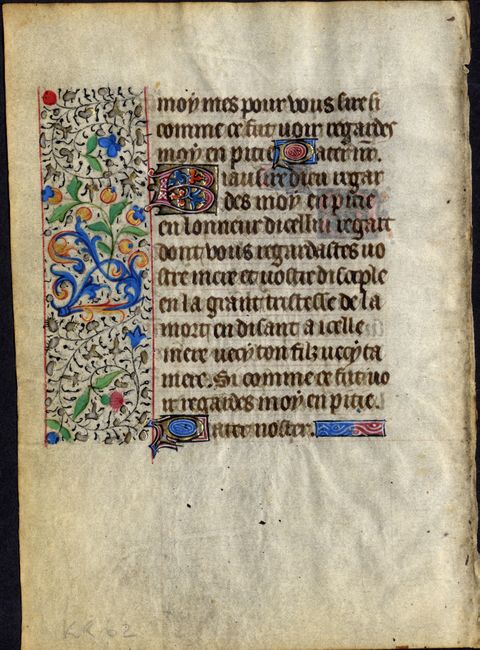 moy mes pour vous sire si
comme ce fut voir regardes
moy en pitie Pater nr̄.
Biau sire dieu regar
des moy en pitie
en lonneur dicellui regart
dont vous regardastes vo
stre mere et vostre disciple
en la grant tristesse de la
mort en disant a icelle
mere vecy ton filz vecy ta
mere. Si comme ce fut vo
ir regardes moy en pitie.
Pater noster.
KR 62